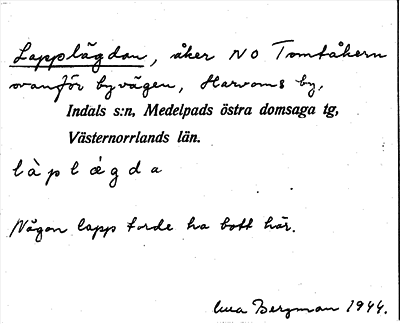 Lapplägdan, åker NO Tomtåkern
ovanför byvägen, Harvoms by,
Indals s:n, Medelpads östra domsaga tg,
Västernorrlands län.
làplǽgda
Någon lapp torde ha bott här.
Bergman 1944.